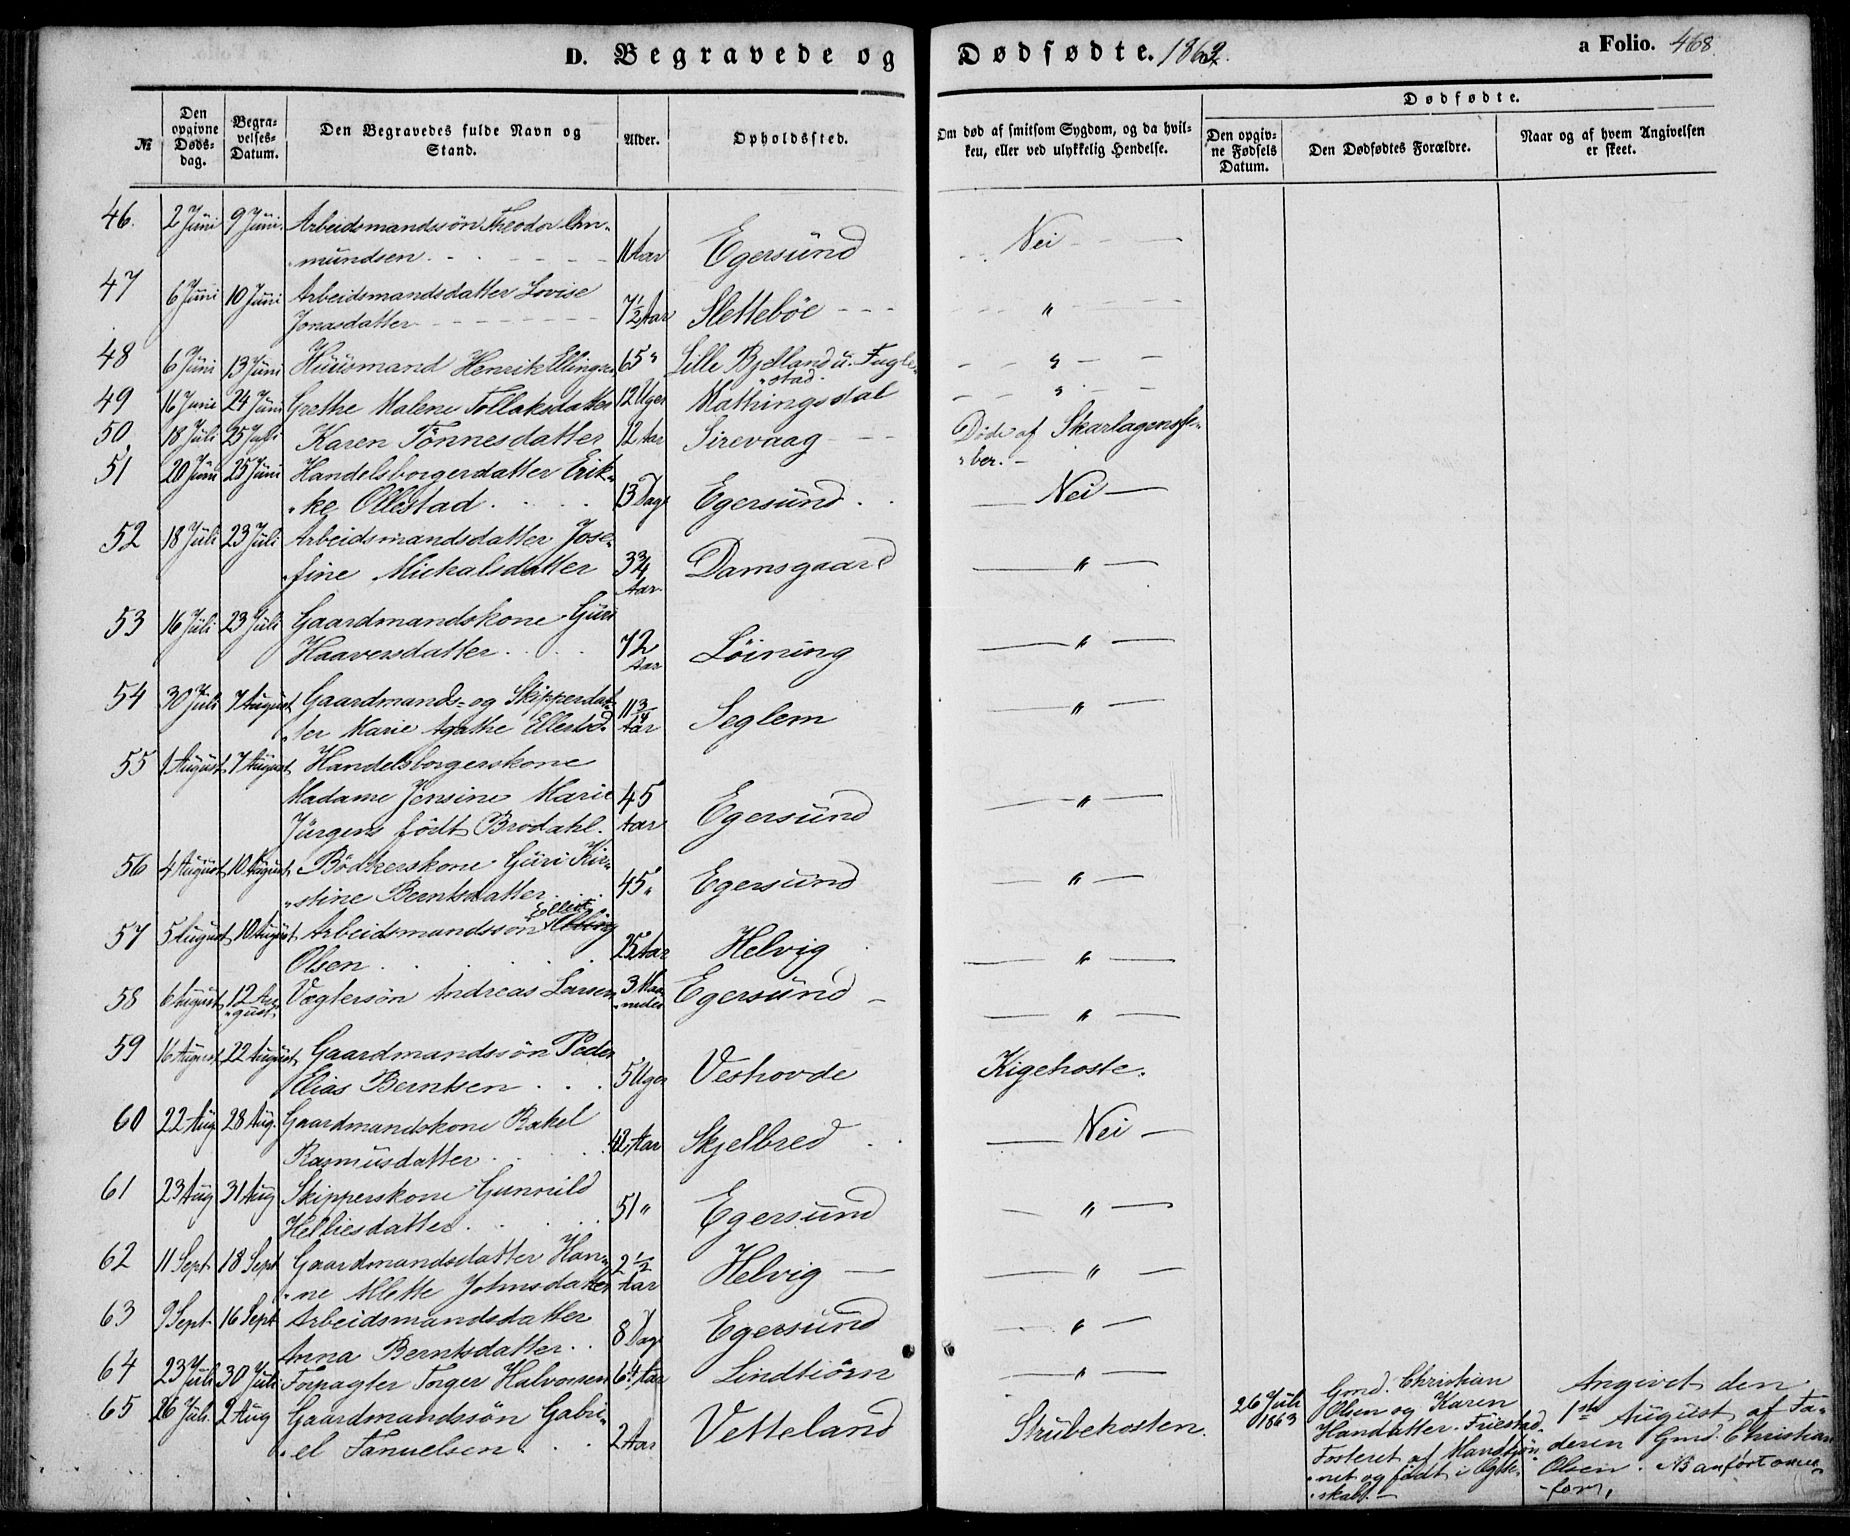 D. Begravede og Dødfødte. 1863. a Folio. 468
№ Den opgivne Døds-dag. Begra-velses-Datum. Den Begravedes fulde Navn og Stand. Alder. Opholdssted. Om død af smitsom Sygdom, og da hvil-ken, eller ved ulykkelig Hendelse. Dødfødte. Den opgiv-ne Fødsels Datum. Den Dødfødtes Forældre. Naar og af hvem Angivelsen er skeet.
46. 2 Juni 9 Juni Arbeidsmandssøn Theodor Om-
mundsen 11 Aar Egersund Nei
47 6 Juni 10 Juni Arbeidsmandsdatter Lovise
Jonasdatter 7½ Aar Slettebøe "
48 6 Juni 13 Juni Huusmand Henrik Ellingsen 65 " Lille Bjelland u. Fugle-
stad. "
49 16 Juni 24 Juni Grethe Malene Tollaksdatter 12 Uger Mathingsdal "
50 18 Juli 25 Juli Karen Tønnesdatter 12 Aar Sirevaag Døde af Skarlagensfe-
ber.
51 20 Juni 25 Juni Handelsborgerdatter Erik-
ke Ollestad 13 Dage Egersund Nei
52 18 Juli 23 Juli Arbeidsmandsdatter Jose-
fine Mickalsdatter 3¾ Aar Damsgaard "
53 16 Juli 23 Juli Gaardmandskone Guri
Haaversdatter 72 Aar Løining "
54 30 Juli 7 August Gaardmands- og Skipperdat-
ter Marie Agathe Ellestad 11¾ Aar Seglem "
55 1 August 7 August Handelsborgerskone
Madame Jensine Marie
Jürgens født Brodahl. 45 Aar Egersund "
56 4 August 10 August Bødkerskone Guri Kir-
stine Berntsdatter 45 " Egersund "
57 5 August 10 August Arbeidsmandssøn
Olsen 25 Aar Helvig "
58 6 August 12 Au-
gust Vægtersøn Andreas Larsen 3 Maa-
neder Egersund "
59 16 August 22 August Gaardmandssøn Peder
Elias Berntsen 5 Uger Veshovde Kigehoste.
60 22 Aug 28 Aug. Gaardmandskone Rakel
Rasmusdatter 42 Aar Skjelbred Nei
61 23 Aug 31 Aug Skipperskone Gunnild
Helliesdatter 51 " Egersund "
62 11 Sept 18 Sept Gaardmandsdatter Han-
ne Mlette Johnsdatter 2½ Aar Helvig "
63 9 Sept. 16 Sept Arbeidsmandsdatter
Anna Berntsdatter 8 Dage Egersund "
64 23 Juli 30 Juli Forpagter Torger Halvorsen 64 Aar Lindtiørn "
65 26 Juli. 2 Aug Gaardmandssøn Gabri-
el Tanuelsen 2 Aar Vetteland Strubehosten.
26 Juli 1863
Gmd. Christian
Olsen og Karen
Hansdatter Friestad.
Fosteret af Mandkjøn-
net og født i Egte-
skabt.
Angivet den
1ste August af Fa-
deren Gmd. Christian
Olsen. NB anført oven-
for,